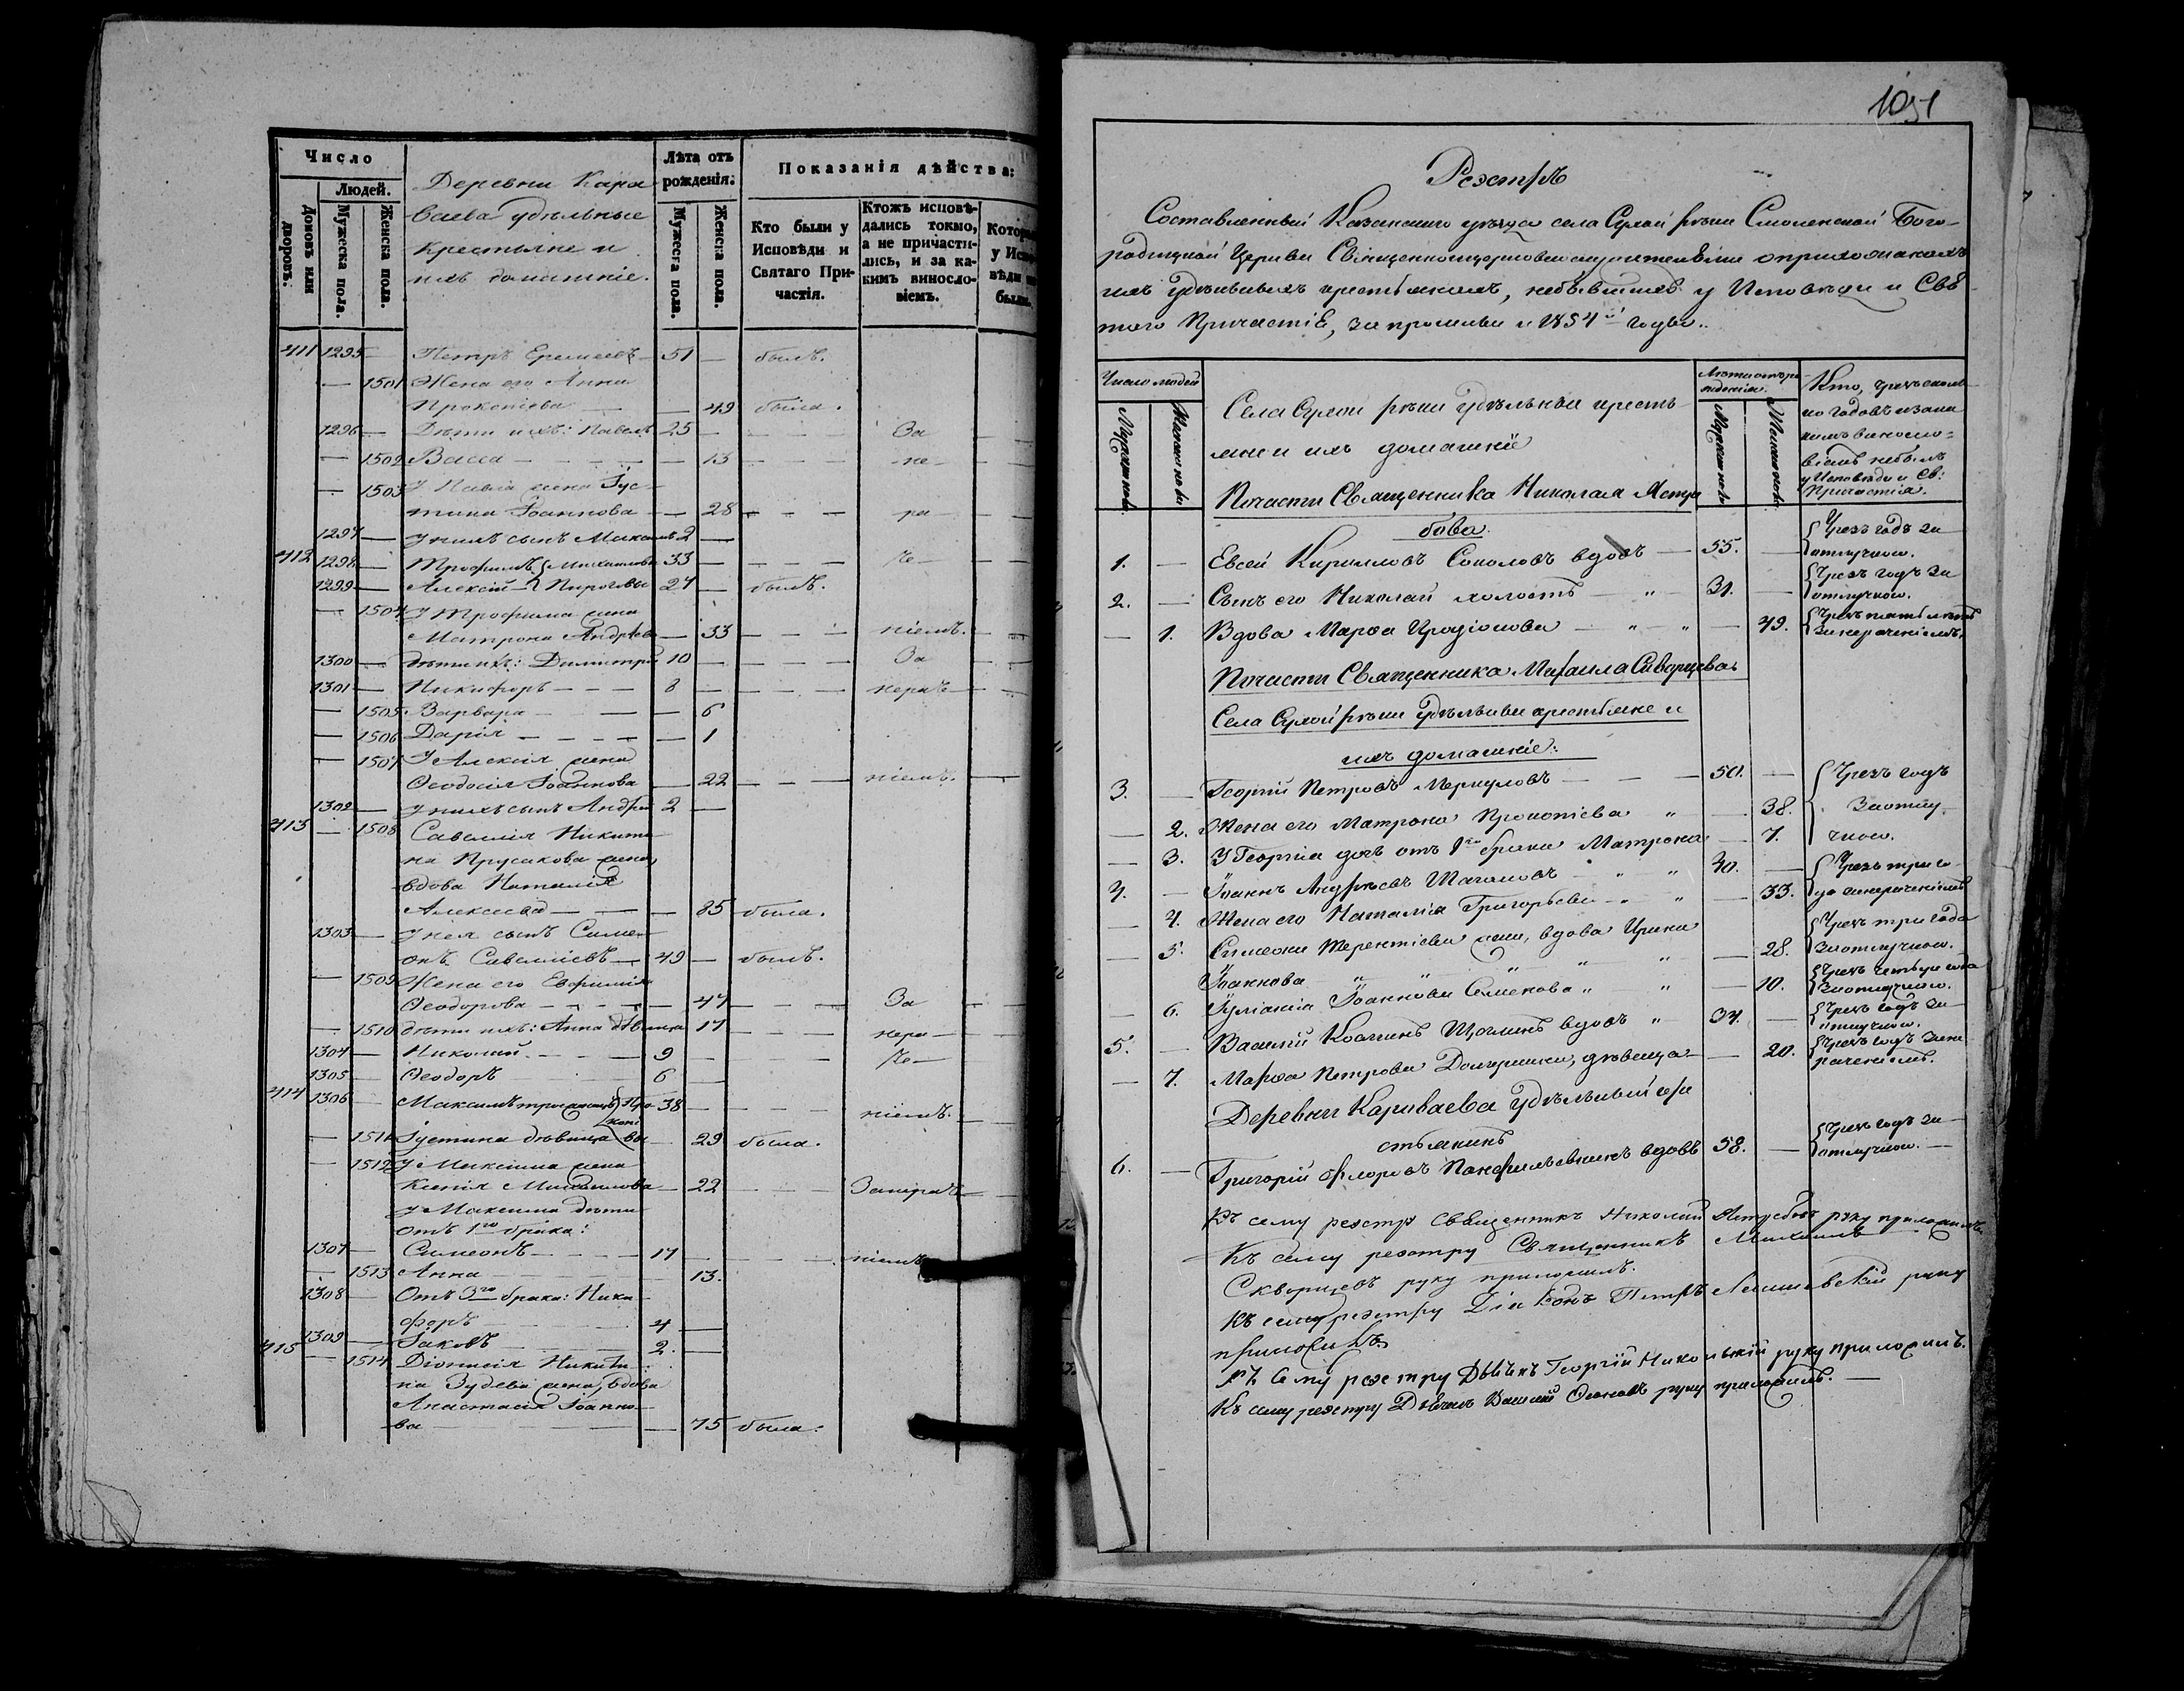 Число
Людей.
Домовъ или дворовъ.
Мужеска пола.
Женска пола.
Деревни Кара
ваева удѣльные
крестьяне и
ихъ домашніе.
Лѣта отъ рожденія:
Мужеска пола.
Женска пола.
Показанія дѣйства:
Кто были у Исповѣди и Святаго При-
частія.
Ктожъ исповѣ-
дались токмо,
а не причасти-
лись, и за ка-
кимъ винносло-
віемъ.
у Испо
вѣди
были.
411 1295 — Петръ Еремеевъ — 51 — былъ.
— 1501 Жена его Анна
Прокопіева — — 49 была.
1296 — Дѣти ихъ: Павелъ 25 — — — — За
— 1502 Васса — — — — — 13 — — — не
— 1503 У Павла жена Іус-
тина Іоаннова — — 28 — — — ра
1297 — у нихъ сынъ Максимъ 2 —
412 1298 — Трофимъ Михайловы 33 — — — — че
1299 — Алексій Пироговы 27 — былъ.
— 1504 У Трофима жена
Матрона Андреева — 33 — — — ніемъ.
1300 — дѣти ихъ: Димитрій 10 — — — — За
1301 — Никифоръ — — — 8 — — — — нерач
— 1505 Варвара — — — 6
— 1506 Дарія — — — — — 1
— 1507 У Алексія жена
Ѳеодосія Іоаннова — 22 — — — ніемъ.
1302 — у нихъ сынъ Андрей 2 —
413 — 1508 Савелія Никити
на Прусакова жена,
вдова Наталія
Алексеева — — — 85 была.
1303 — у нея сынъ Симе
онъ Савеліевъ — 49 — былъ.
— 1509 Жена его Евфимія
Ѳеодорова — — — — 47 — — — За
— 1510 дѣти ихъ: Анна дѣвица 17 — — — нера
1304 — Николай — — — 9 — — — че
1305 — Ѳеодоръ 6 —
414 1306 Максимъ 38 — — — — ніемъ.
— 1511 Іустина дѣвица вы — 29 была.
— 1512 У Максима жена
Ксенія Михайлова — 22 — — — Занерач
у Максима дѣти
отъ 1го брака:
1307 — Симеонъ — — — — 17 — — — — ніемъ
— 1513 Анна — 13.
1308 — Отъ 3го брака: Ники
форъ — 4 —
1309 — Іаковъ — 2. —
415 — 1514 Діонисія Никити
на Зудева жена, вдова
Анастасія Іоанно-
ва — — 75 была.
1051
Реэстръ
Составленный Казанскаго уѣзда села Сухой рѣки Смоленской Бого-
родицкой Церкви Священноцерковнослужителями о прихожанахъ
ихъ удѣльныхъ крестьянахъ, небывшихъ у Исповѣди и Свя
таго Причастія, за прошлые и 1854й годы.
Число людей
Мужска пола
Женска пола
Села Сухой рѣки удѣльные кресть
яне и ихъ домашніе
Лѣта отъ ро
жденія.
Мужска пола
Женска пола
Кто, чрезъ сколь
ко годовъ и за ка
кимъ винносло=
віемъ небылъ
у Исповѣди и Св:
Причастія.
По части Священника Николая Ястре
бова.
1. — Евсей Кирилловъ Соколовъ вдовъ — 55. — Чрезъ годъ за
отлучкою.
2. — Сынъ его Николай холостъ — " — 31. — Чрезъ годъ за
отлучкою.
— 1. Вдова Марѳа Иродіонова — " " — 49. Чрезъ пять лѣтъ
за нераченіемъ.
По части Священника Михаила Скворцева
Села Сухой рѣки удѣльные крестьяне и
ихъ домашніе:
3. — Георгій Петровъ Меркуловъ — — — 50. — Чрезъ годъ
— 2. Жена его Матрона Прокопіева " — 38. за отлу
— 3. У Георгія дочь отъ 1го брака Матрона — 7. чкою.
4. — Іоаннъ Андреевъ Шагаловъ — " " 40. — Чрезъ три го
— 4. Жена его Наталія Григорьева — " " — 33. да за нераченіемъ
— 5. Симеона Терентіева жена, вдова Ирина Чрезъ три года
Іоаннова " " " " " — 28. за отлучкою.
— 6. Іуліанія Іоаннова Семенова " " — 10. Чрезъ четыре года
за отлучкою.
5. — Василій Козминъ вдовъ " 34. — Чрезъ годъ за
отлучкою.
— 7. Марѳа Петрова дѣвица — — 20. Чрезъ годъ зане
раченіемъ.
Деревни Караваева удѣльный кре
стьянинъ
6. — Григорій Флоровъ вдовъ 58. — Чрезъ годъ за
отлучкою. —
Къ сему реэстру священникъ Николай Ястребовъ руку приложилъ.
Къ сему реэстру Священникъ Михаилъ
Скворцевъ руку приложилъ.
Къ сему реэстру Діаконъ Петръ руку
приложилъ.
Къ сему реэстру Дьячекъ Георгій Никольскій руку приложилъ.
Къ сему реэстру Дьячекъ Василій руку приложилъ. —